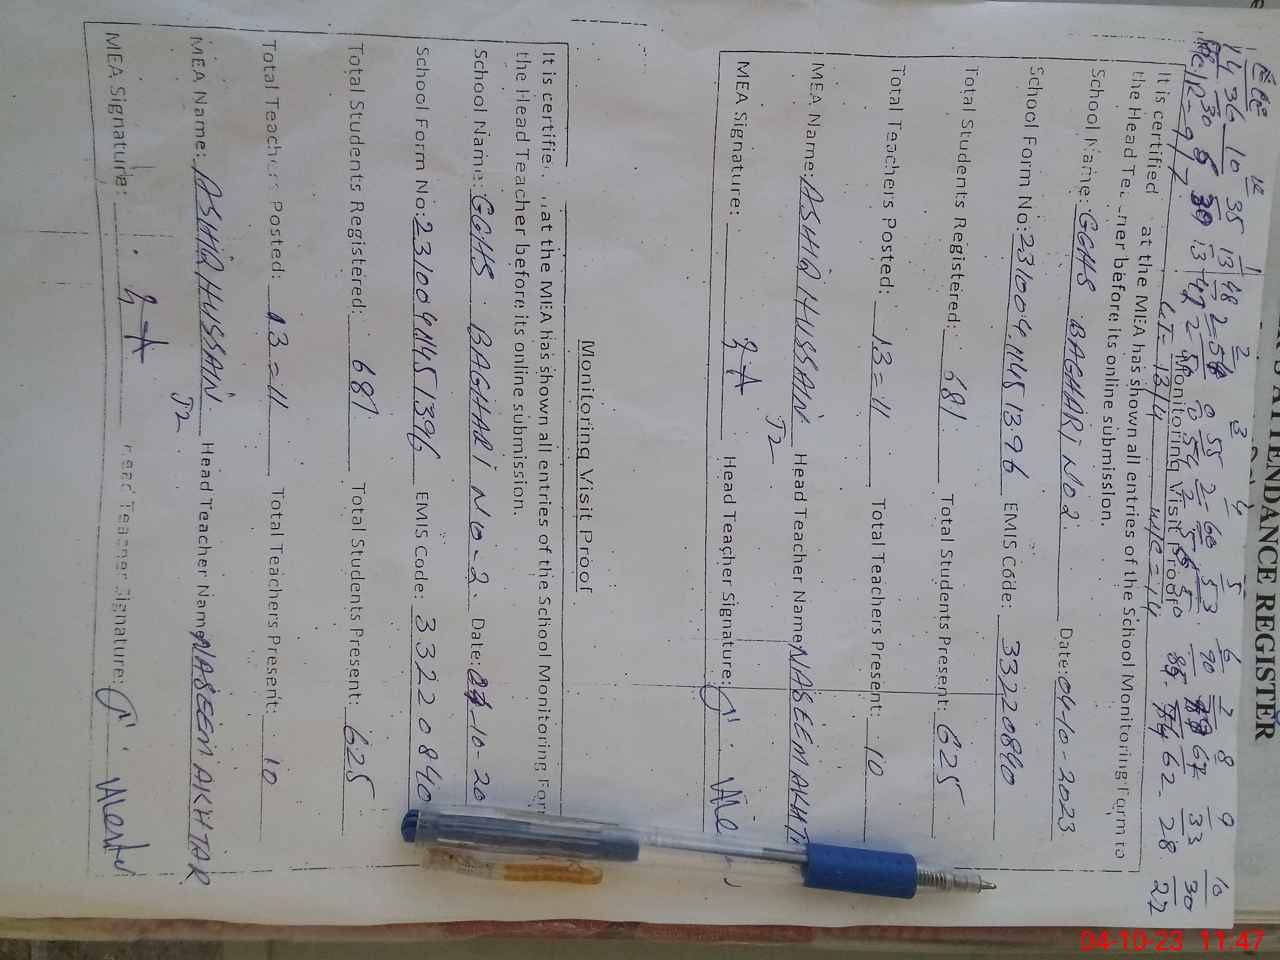 ATTENDANCE REGISTER
ECE K 1 2 3 4 5 6 7 8 9 10
14 36 10 35 13 48 2=58 0 55 2=60 53 90 67 33 30
LT= 13/4 W/C=14
Monitoring Visit Proof
It is certified at the MEA has shown all entries of the School Monitoring Form to
the Head Teacher before its online submission.
School Name: GGHS BAGHARI NO 2. Date: 04-10-2023
School Form No: 231004114451396 EMIS Code: 33220840
Total Students Registered: 681 Total Students Present: 625
Total Teachers Posted: 13=11 Total Teachers Present: 10
MEA Name: ASHIQ HUSSAIN Head Teacher Name NASEEM AKHT
J2
MEA Signature: Head Teacher Signature:
Monitoring Visit Proof
It is certifie at the MEA has shown all entries of the School Monitoring For
the Head Teacher before its online submission.
School Name: GGHS BAGHARI NO-2. Date: 04-10-20
School Form No: 231004114451396 EMIS Code: 33220840
Total Students Registered: 681 Total Students Present: 625
Total Teachers Posted: 13=11 Total Teachers Present: 10
MEA Name: ASHIQ HUSSAIN. Head Teacher Name NASEEM AKHTAR
J2
MEA Signature: Head Teacher Signature:
04-10-23 11:47